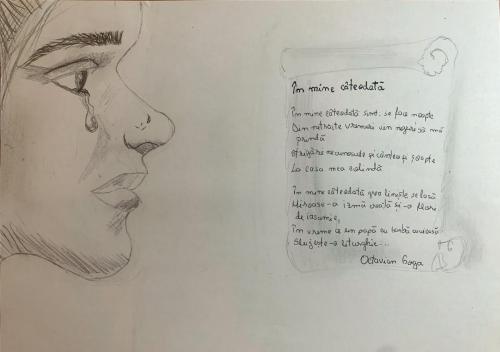 În mine câteodată
În mine câteodată simt, se face noapte
Din netraite vremuri vin negre să mă
prindă
Strigăre necunoscute și cântec și șoapte
La casa mea colindă
În mine câteodată grea liniște se lasă
Miroase-a izmă creată și-a floare
de iasomie,
În vreme ce un popă cu barbă cuvioasă
Slujește-o liturghie...
Octavian Goga